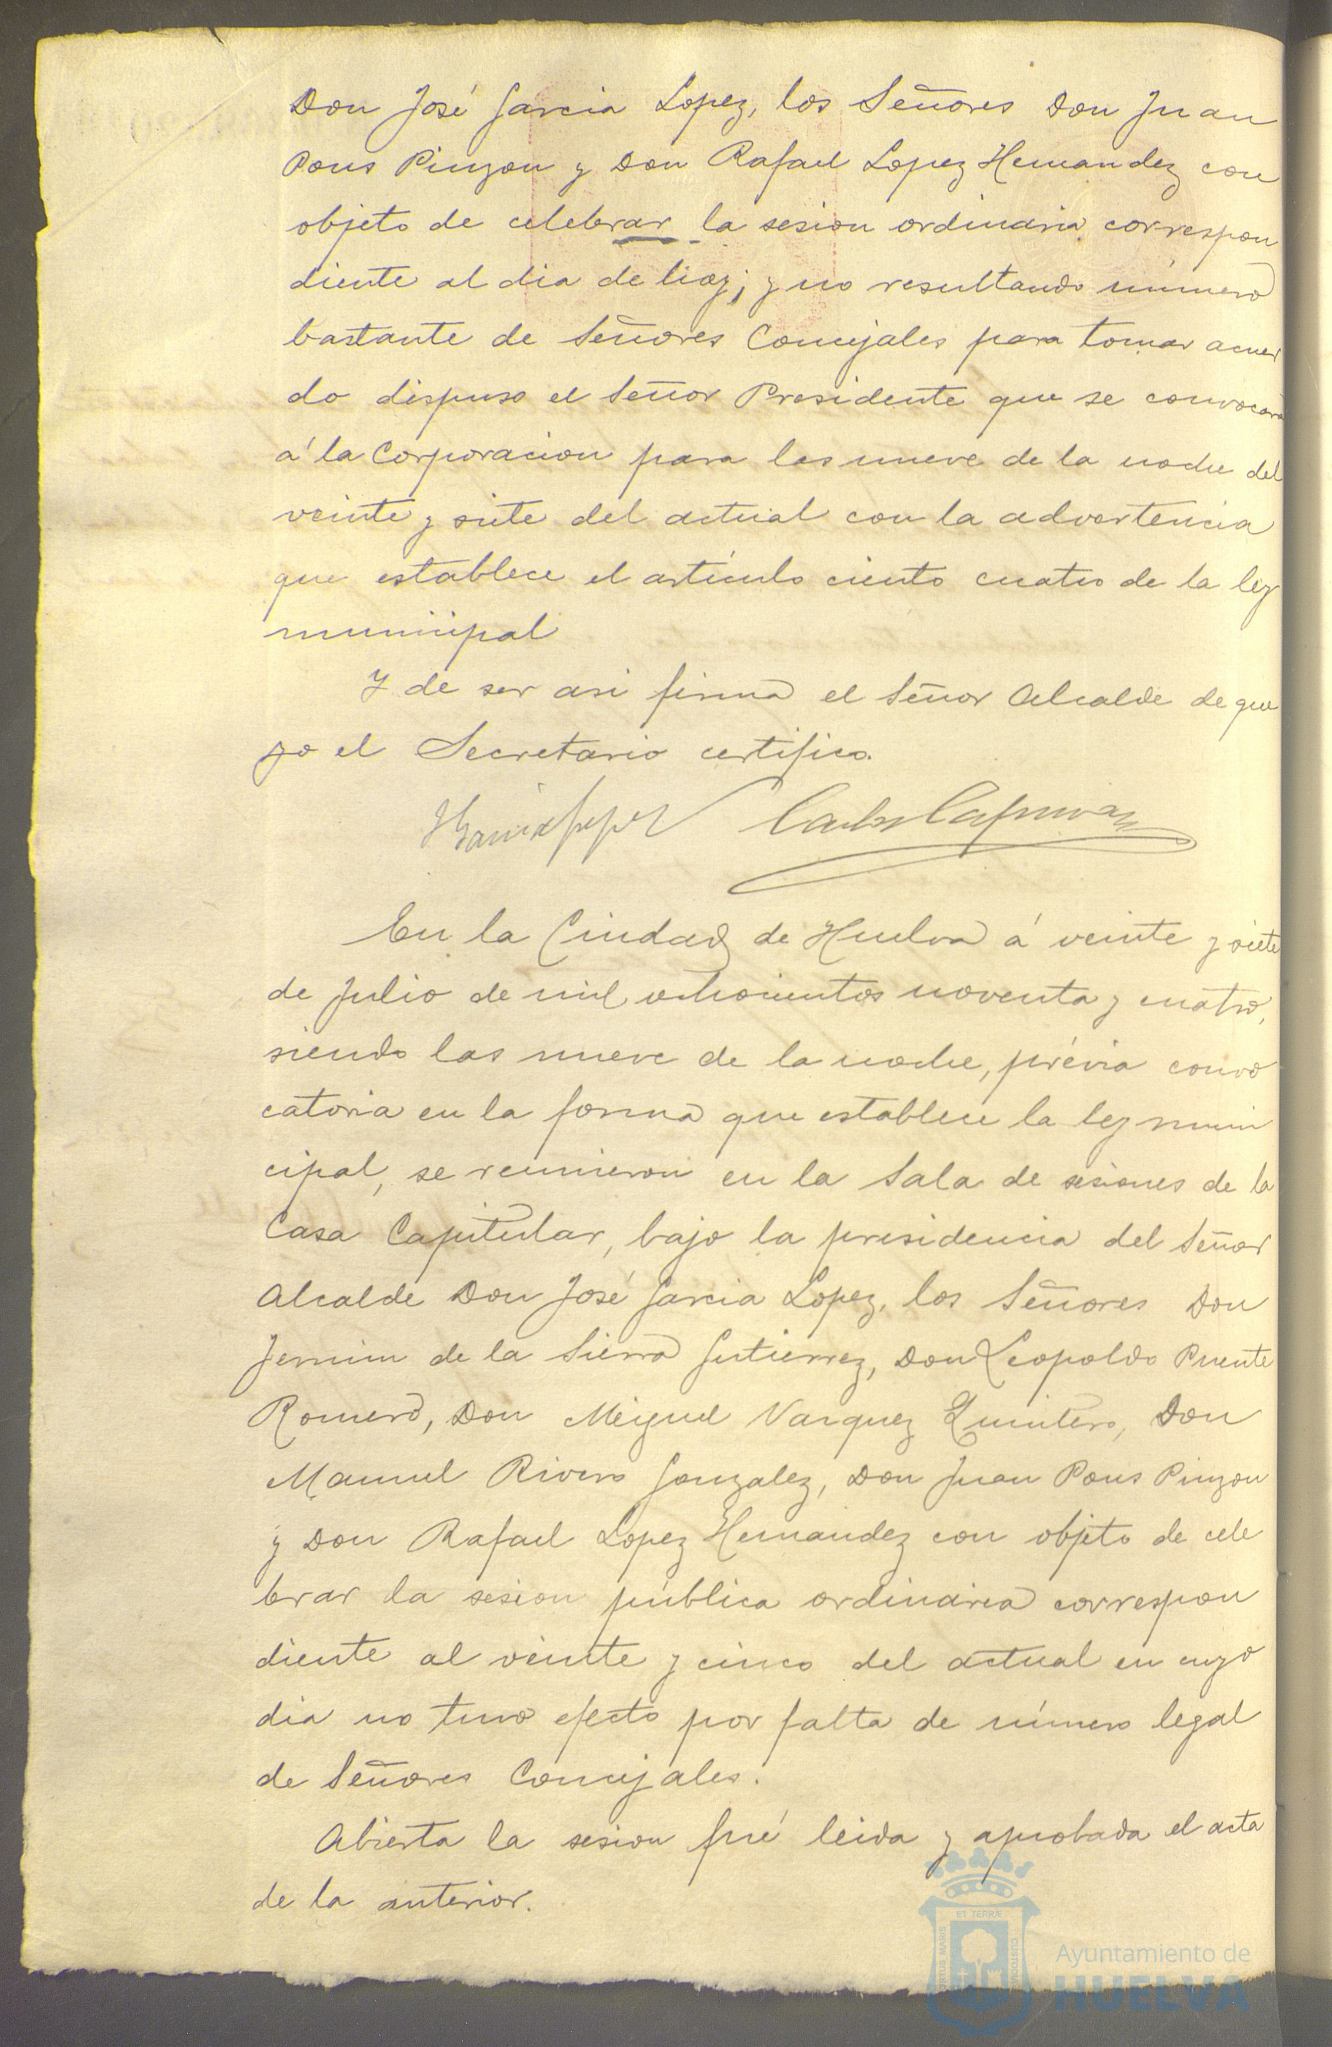 Don José Garcia Lopez, los Señores Don Juan
Pons Pinzon y Don Rafael Lopez Hernandez con
objeto de celebrar la sesion ordinaria correspon
diente al dia de hoy; y no resultando número
bastante de Señores Concejales para tomar acuer
do dispuso el Señor Presidente que se convocara
á la Corporacion para las nueve de la noche del
veinte y siete del actual con la advertencia
que establece el artículo ciento cuatro de la ley
municipal
Y de ser asi firma el Señor Alcalde de que
yo el Secretario certifico.
En la Ciudad de Huelva á veinte y siete
de Julio de mil ochocientos noventa y cuatro,
siendo las nueve de la noche, prévia convo
catoria en la forma que establece la ley muni
cipal, se reunieron en la Sala de sesiones de la
Casa Capitular, bajo la presidencia del Señor
Alcalde Don José Garcia Lopez, los Señores Don
de la Sierra Gutierrez, Don Leopoldo Puente
Romero, Don Miguel Vazquez Quintero, Don
Manuel Rivero Gonzalez, Don Juan Pons Pinzon
y Don Rafael Lopez Hernandez con objeto de cele
brar la sesion pública ordinaria correspon
diente al veinte y cinco del actual en cuyo
dia no tuvo efecto por falta de número legal
de Señores Concejales.
Abierta la sesion fué leida y aprobada el acta
de la anterior.
ET TERRÆ
PORTUS MARIS
CUSTODIA
Ayuntamiento de
HUELVA